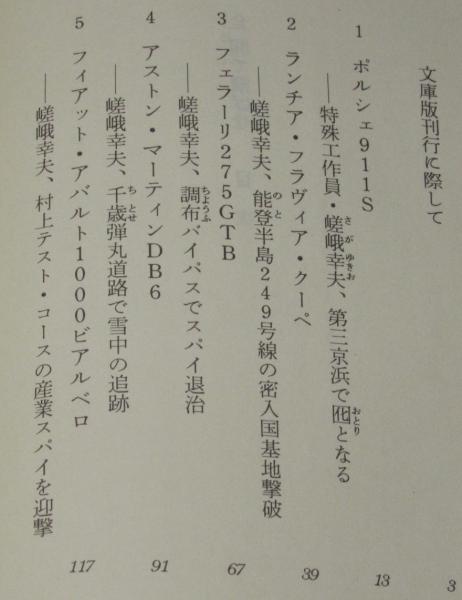 文庫版刊行に際して 3
1 ポルシェ911S 13
――特殊工作員・嵯峨幸夫、第三京浜で囮となる
さが ゆきお おとり
2 ランチア・フラヴィア・クーペ 39
――嵯峨幸夫、能登半島249号線の密入国基地撃破
のと
3 フェラーリ275GTB 67
――嵯峨幸夫、調布バイパスでスパイ退治
ちようふ
4 アストン・マーティンDB6 91
――嵯峨幸夫、千歳弾丸道路で雪中の追跡
ちとせ
5 フィアット・アバルト1000ビアルベロ 117
――嵯峨幸夫、村上テスト・コースの産業スパイを迎撃